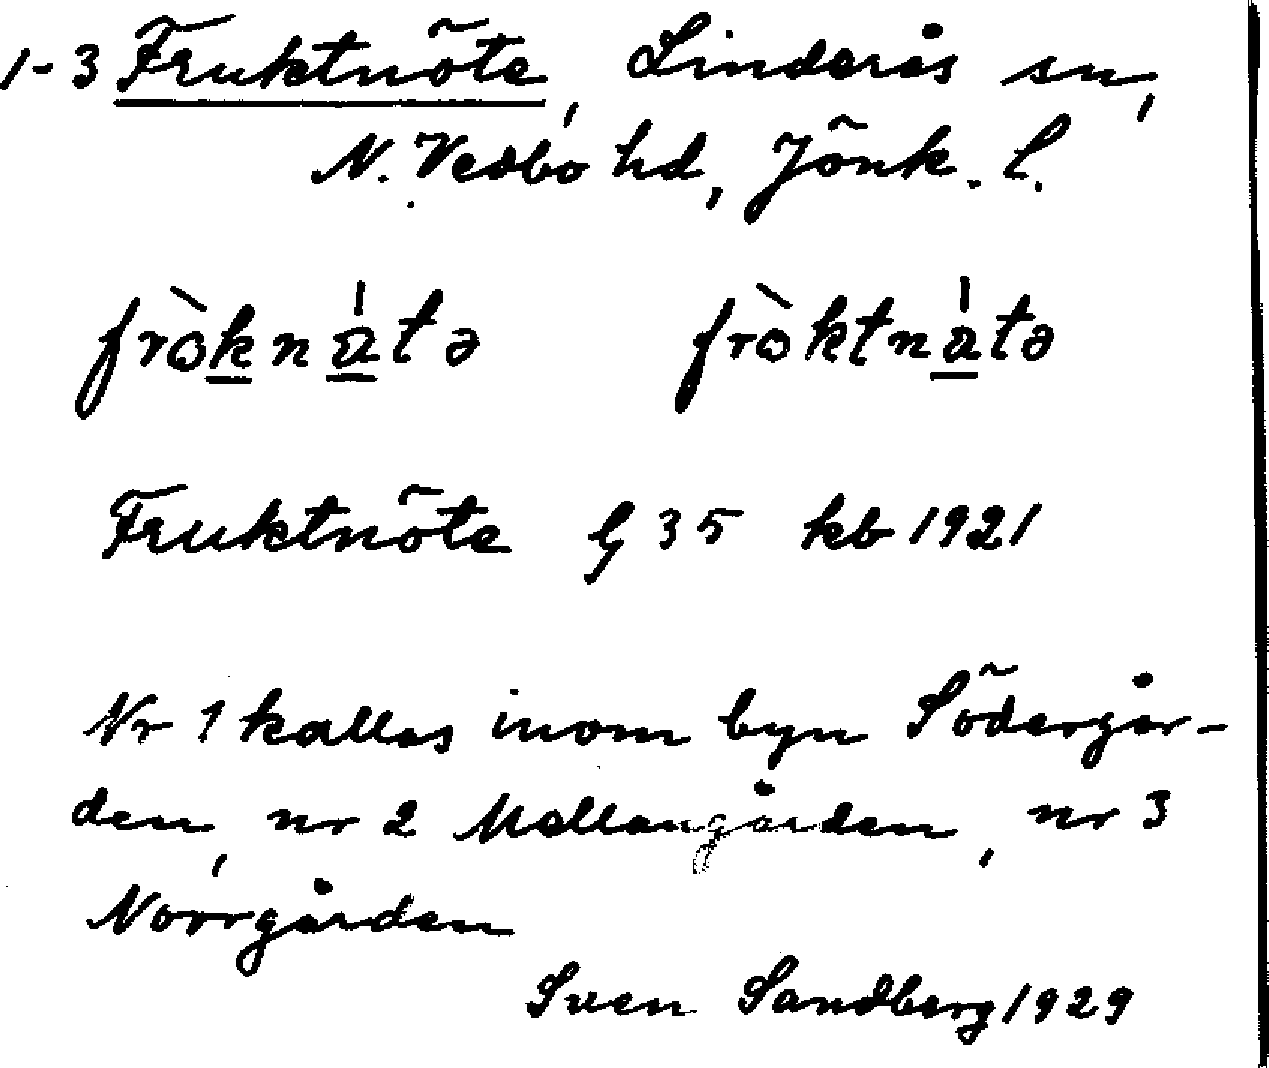 1-3 Fruktnöte, Linderås sn,
N. Vedbo hd, Jönk. l.
fròknåtə fròktnåtə
Fruktnöte 35 kb 1921
Nr 1 kallas inom byn Södergår-
den, nr 2 Mellangården, nr 3
Norrgården
Sven Sandberg 1929